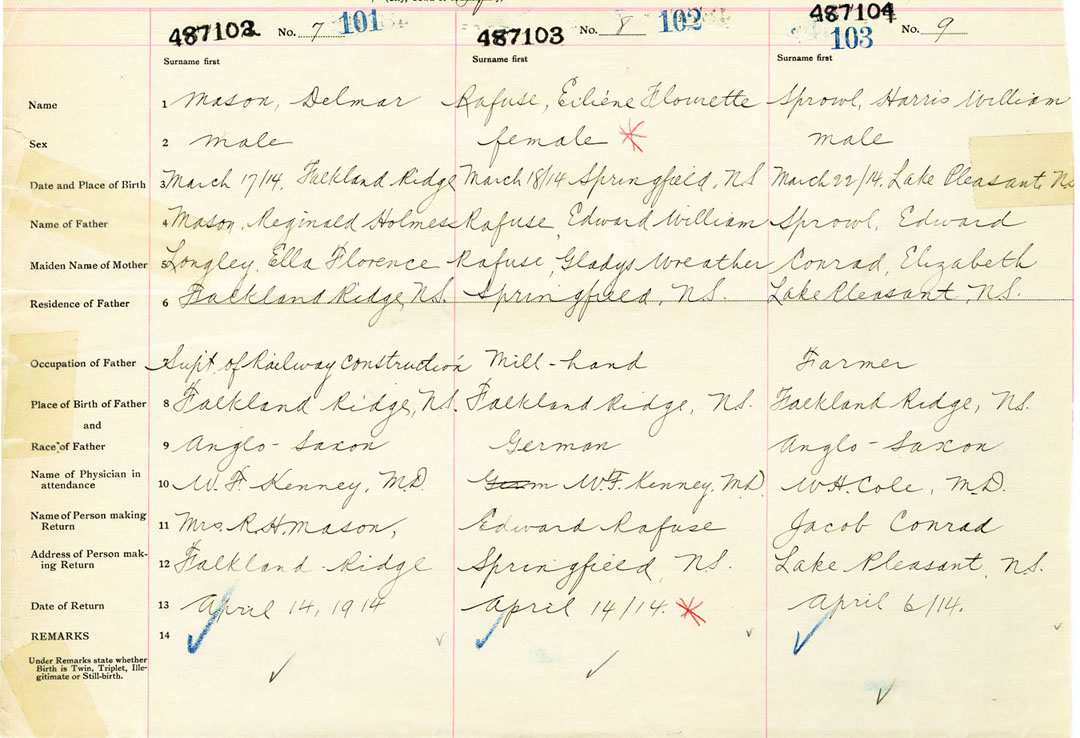 487102 No. 7 101 487103 No. 8 102 487104 No. 9 103
Surname first Surname first Surname first
Name 1 Mason, Delmar Rafuse, Eiliene Flourette Sprowl, Harris William
Sex 2 male female male
Date and Place of Birth 3 March 17/14, Falkland Ridge March 18/14 Springfield, N.S March 22/14. Lake Pleasant N.S
Name of Father 4 Mason, Reginald Holmes Rafuse, Edward William Sprowl, Edward
Maiden Name of Mother 5 Longley, Ella Florence Rafuse, Gladys Wreather Conrad, Elizabeth
Residence of Father 6 Falkland Ridge, N.S. Springfield, N.S. Lake Pleasant, N.S.
Occupation of Father 7 Supt of Railway Construction Mill-hand Farmer
Place of Birth of Father 8 Falkland Ridge, N.S. Falkland Ridge, N.S. Falkland Ridge, N.S.
and
Race of Father 9 Anglo-Saxon German Anglo-Saxon
Name of Physician in
attendance 10 W. F. Kenney, M.D. W.F. Kenney, M.D. W.H. Cole, M.D.
Name of Person making
Return 11 Mrs. R.H. Mason, Edward Rafuse Jacob Conrad
Address of Person mak-
ing Return 12 Falkland Ridge Springfield, N.S. Lake Pleasant, N.S.
Date of Return 13 April 14, 1914 April 14/14. April 6/14.
REMARKS 14
Under Remarks state whether
Birth is Twin, Triplet, Ille-
gitimate or Still-birth.